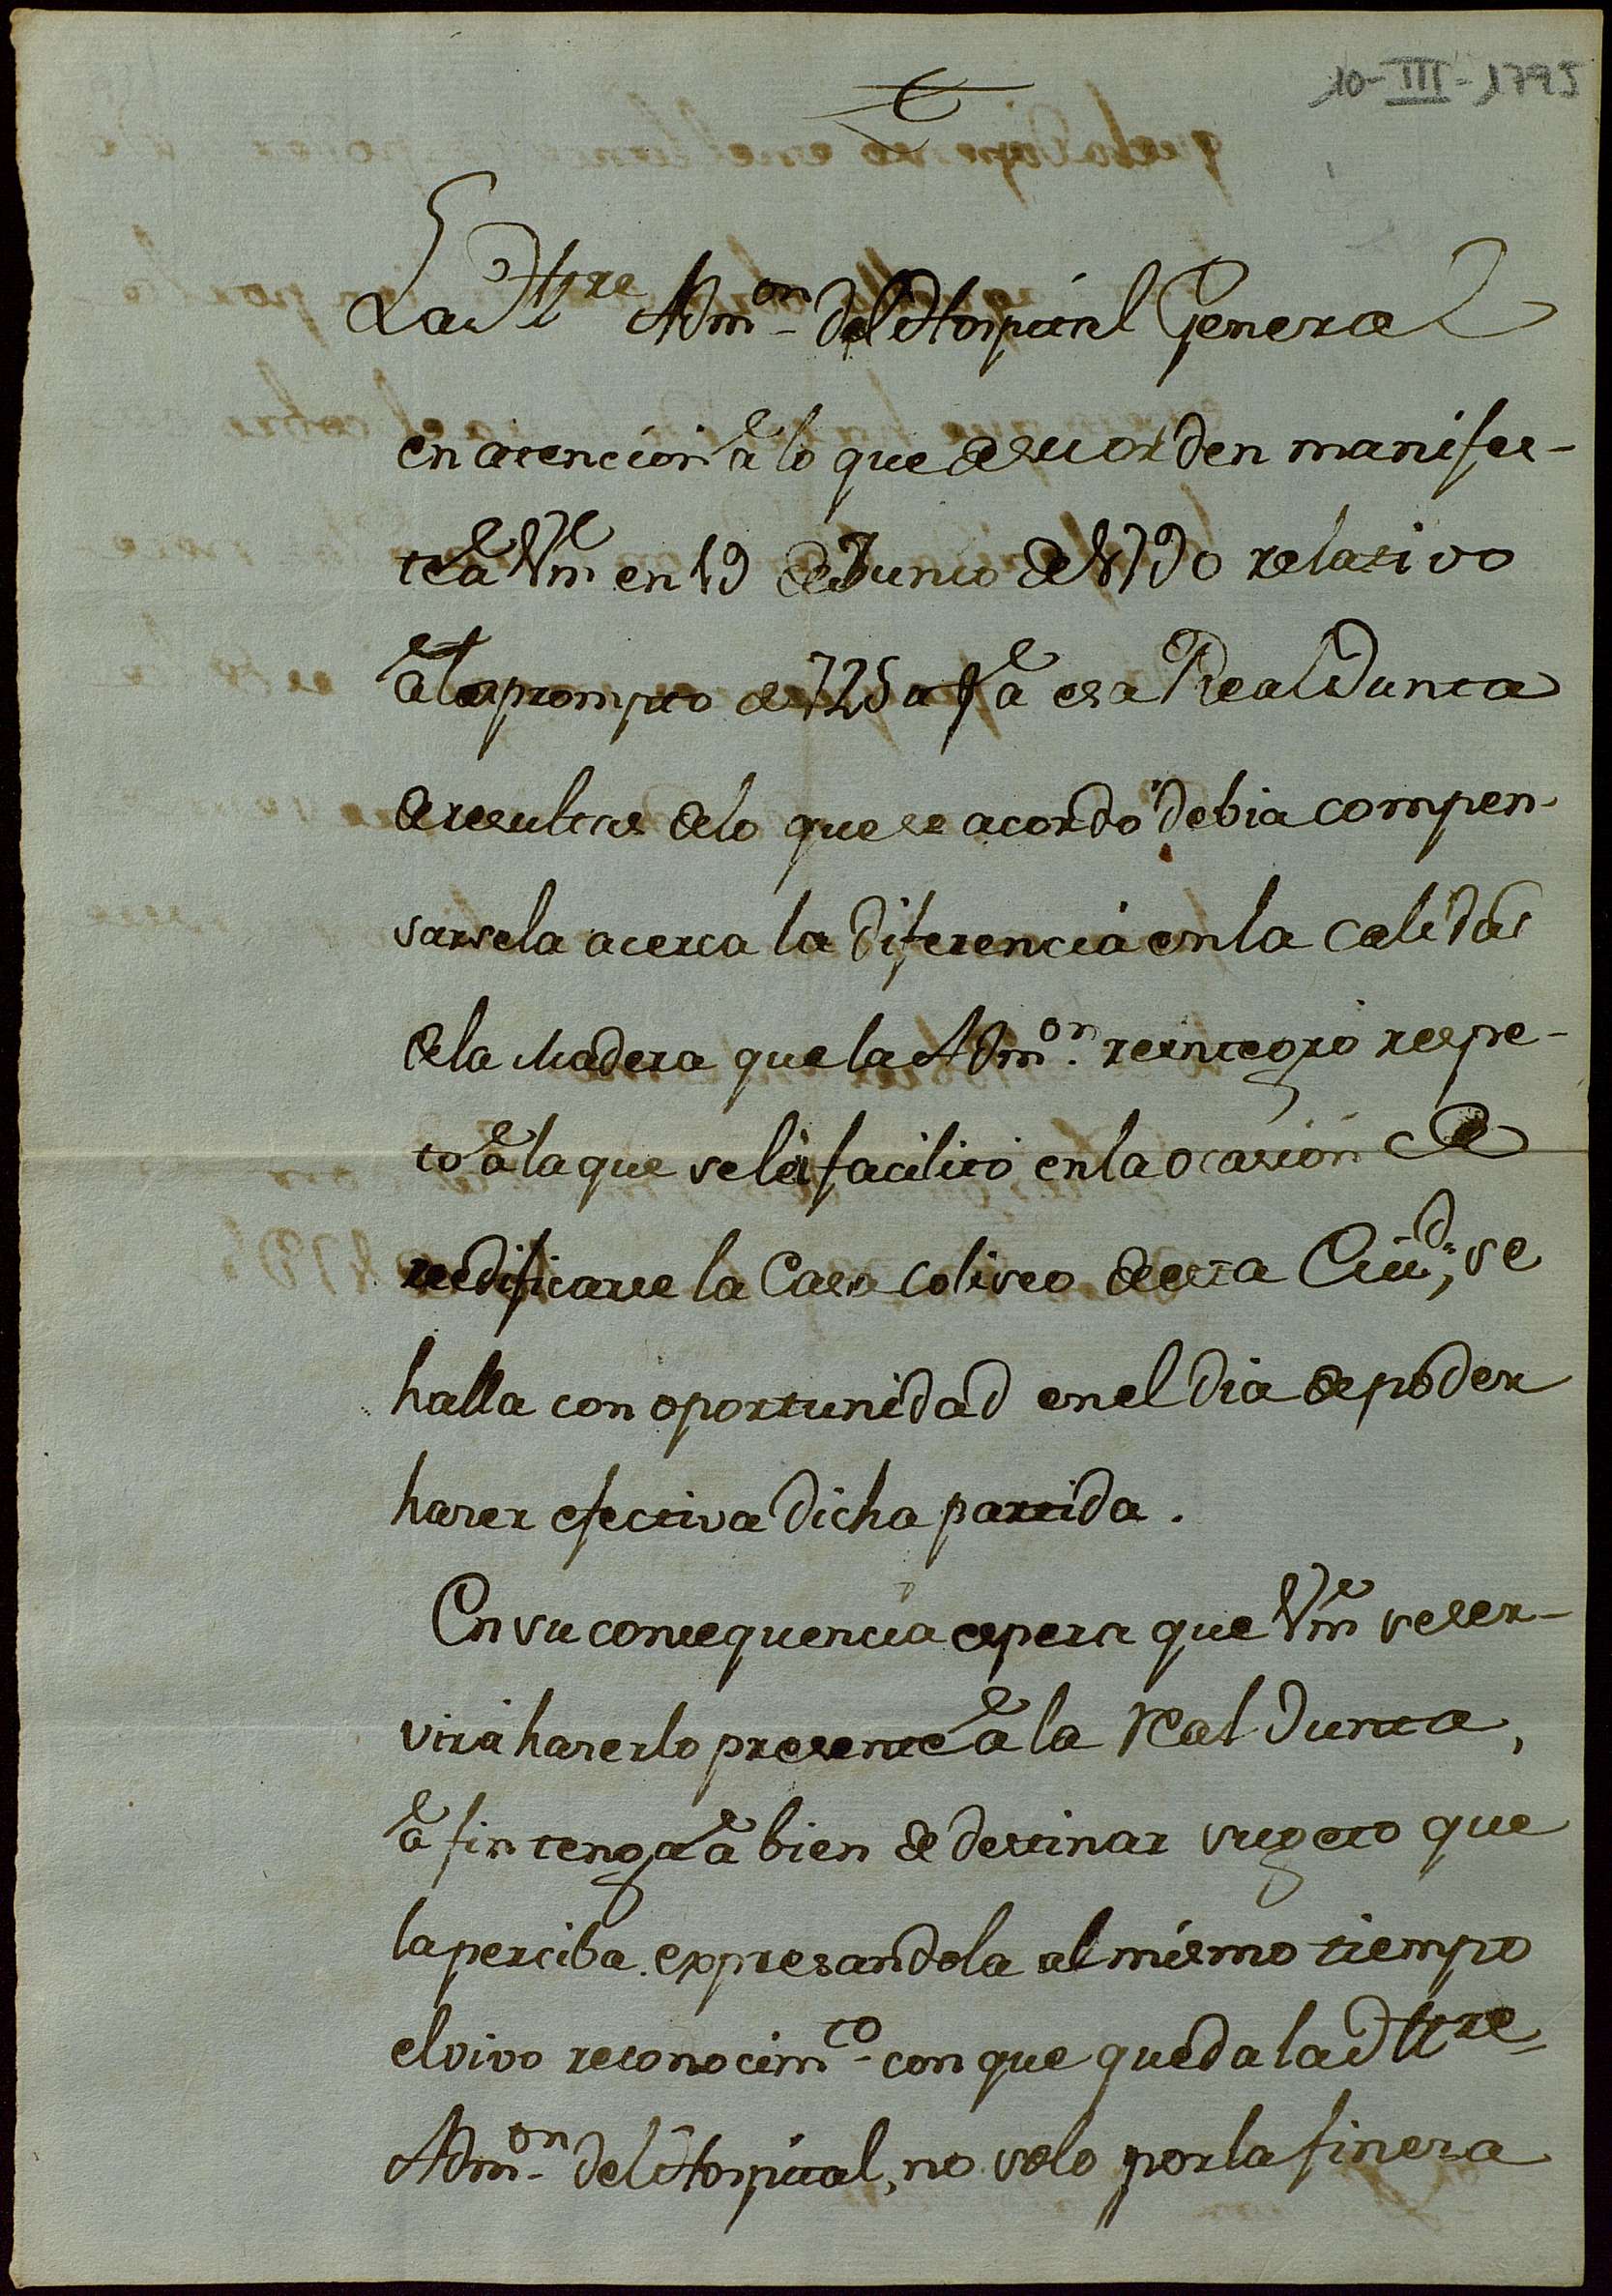 10-III-1795
La Iltre Admon. del Hospital General
en atencion à lo que de su orden manifes-
tè à Vm en 19 de Junio de 1790 relativo
à la prompto de 725 a fà esa Real Junta
de resultas de lo que se acordó debia compen-
sarsela acerca la diferencia en la calidad
de la Madera que la Admon. reintegró respe-
to à la que se lè facilitó en la ocasion de
redificarse la Casa Coliseo de esta Ciud.; se
halla con oportunidad en el dia de poder
hazer efectiva dicha partida.
En su consequencia espera que Vm se ser-
virà hazerlo presente à la Real Junta,
à fin tenga à bien de destinar sugeto que
la perciba. expresandola al mismo tiempo
el vivo reconocimto. con que queda la Iltre
Admon. del Hospital, no solo por la fineza